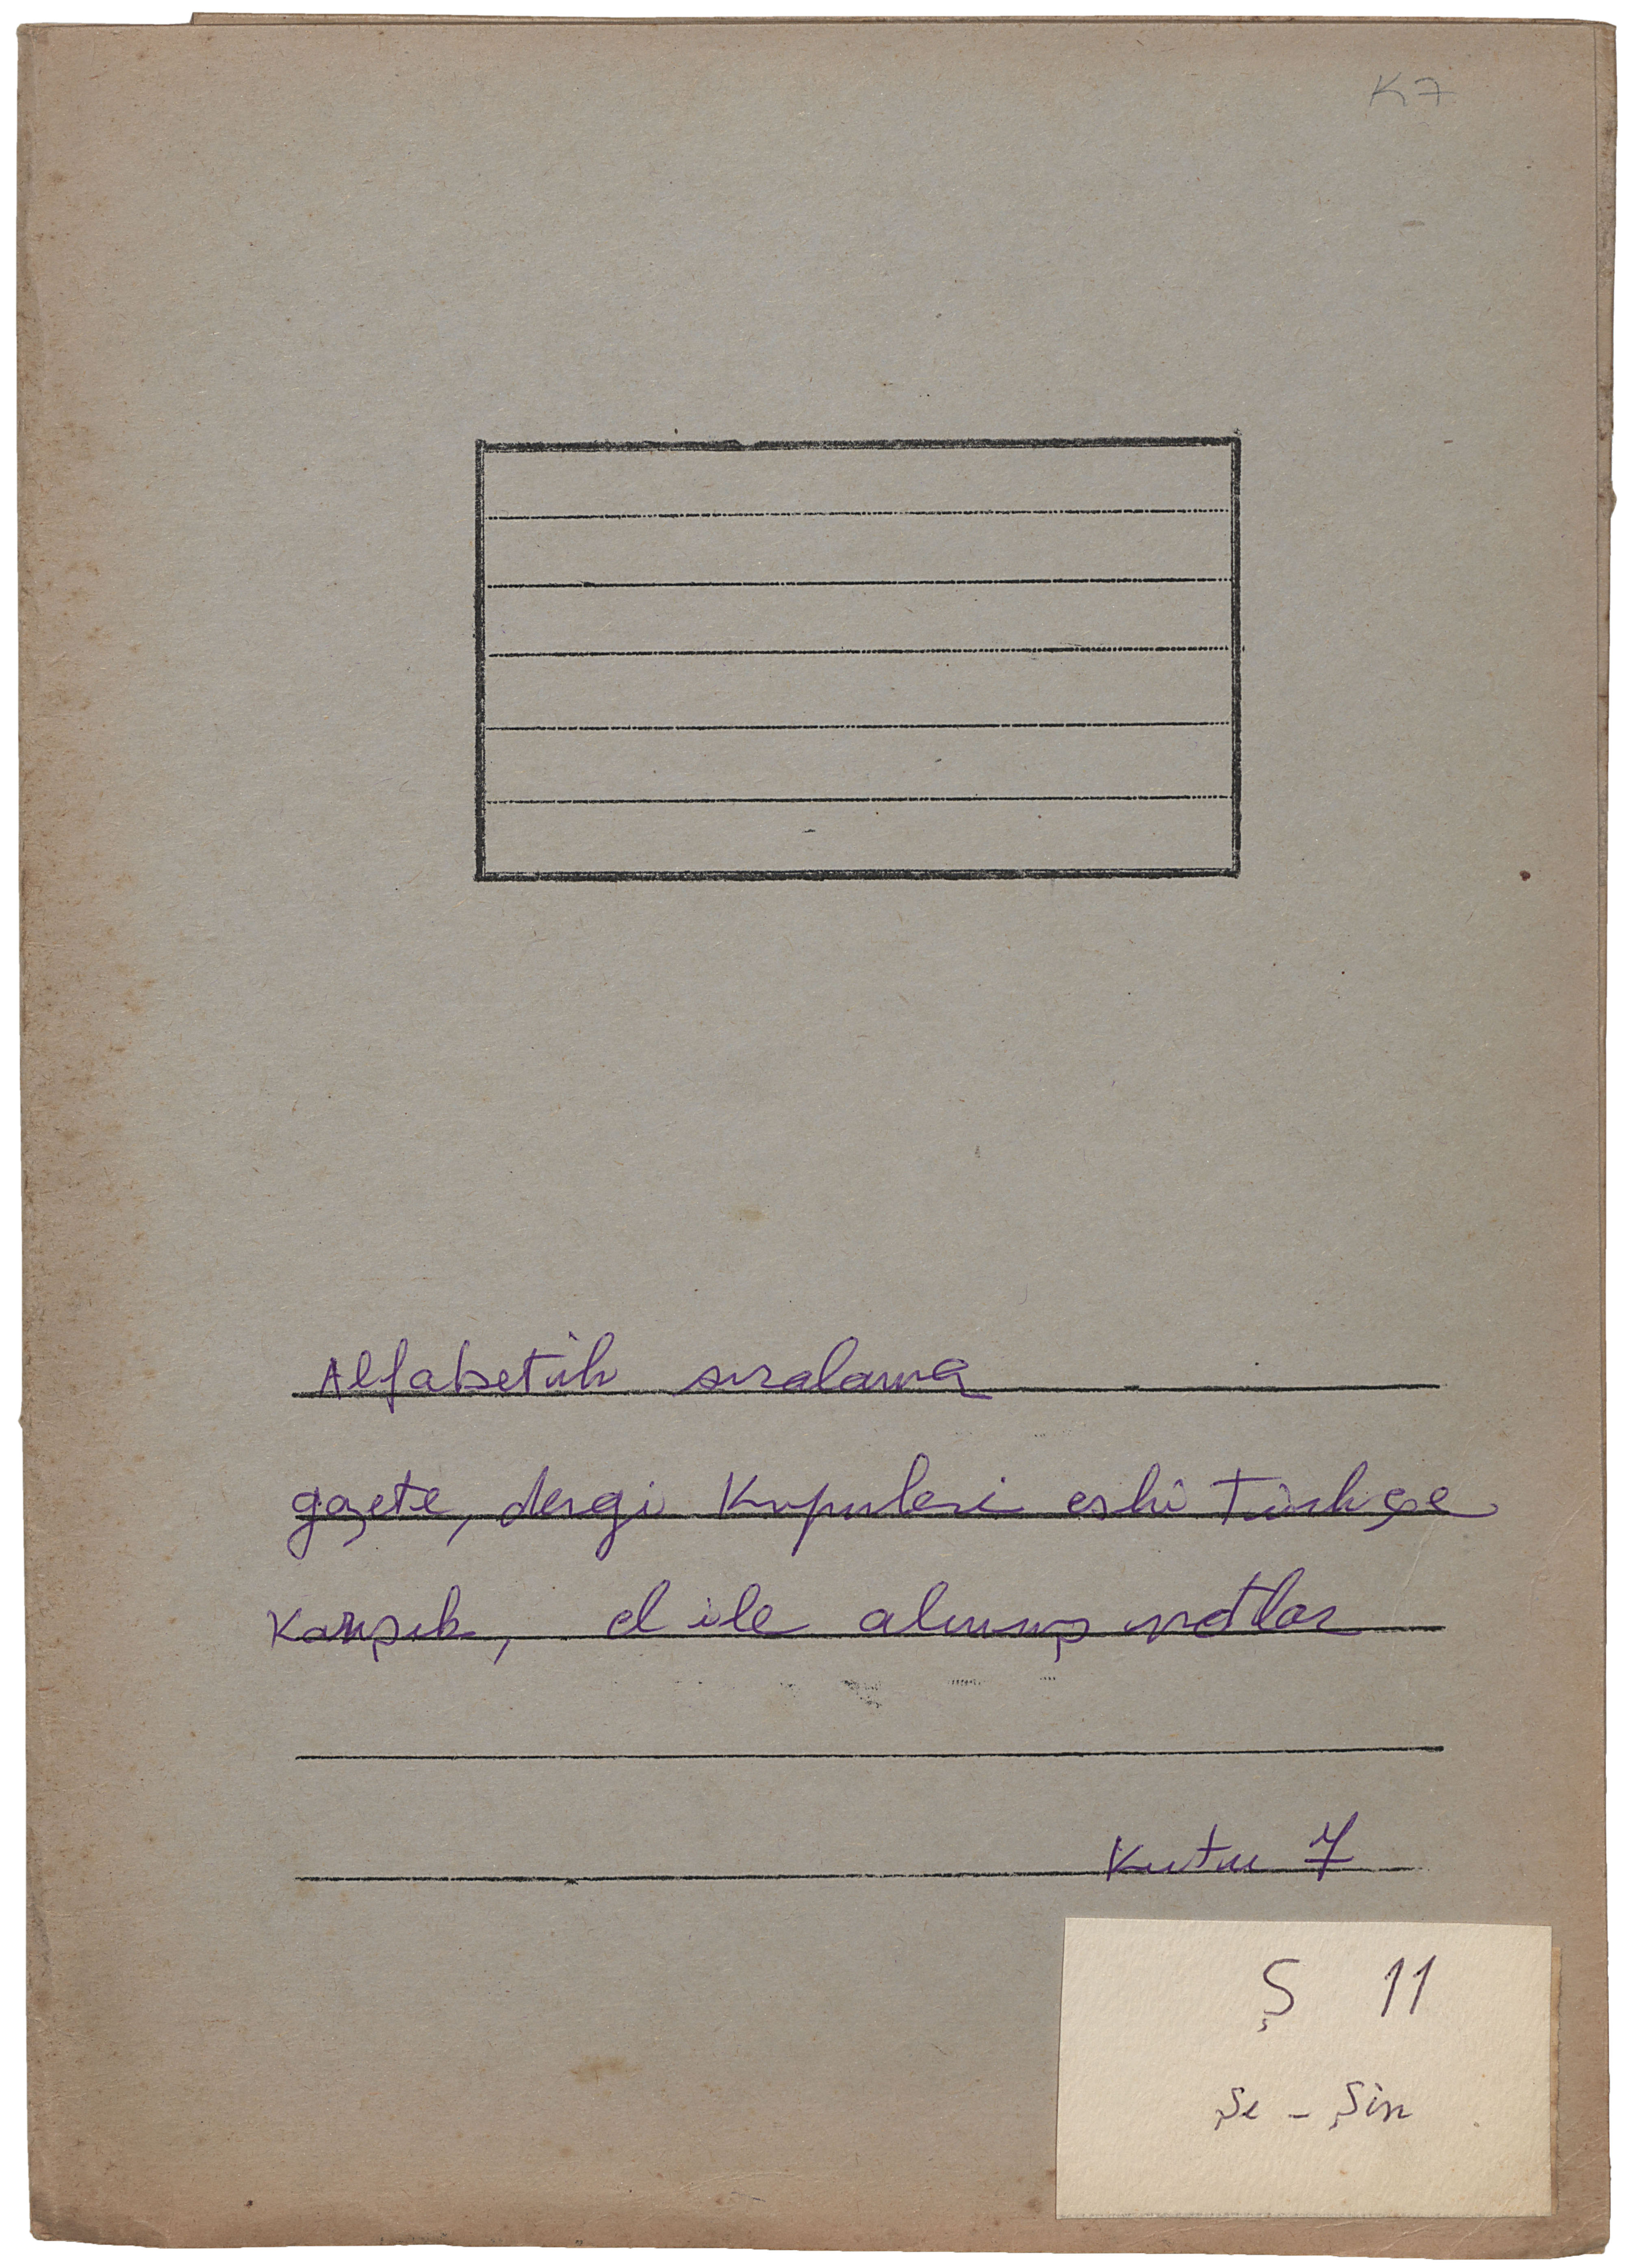 K7
Alfabetik sıralama
gazete, dergi Kupürleri eski Türkçe
Karışık, el ile alınmış notlar
Kutu 7
Ş 11
Şe - Şin